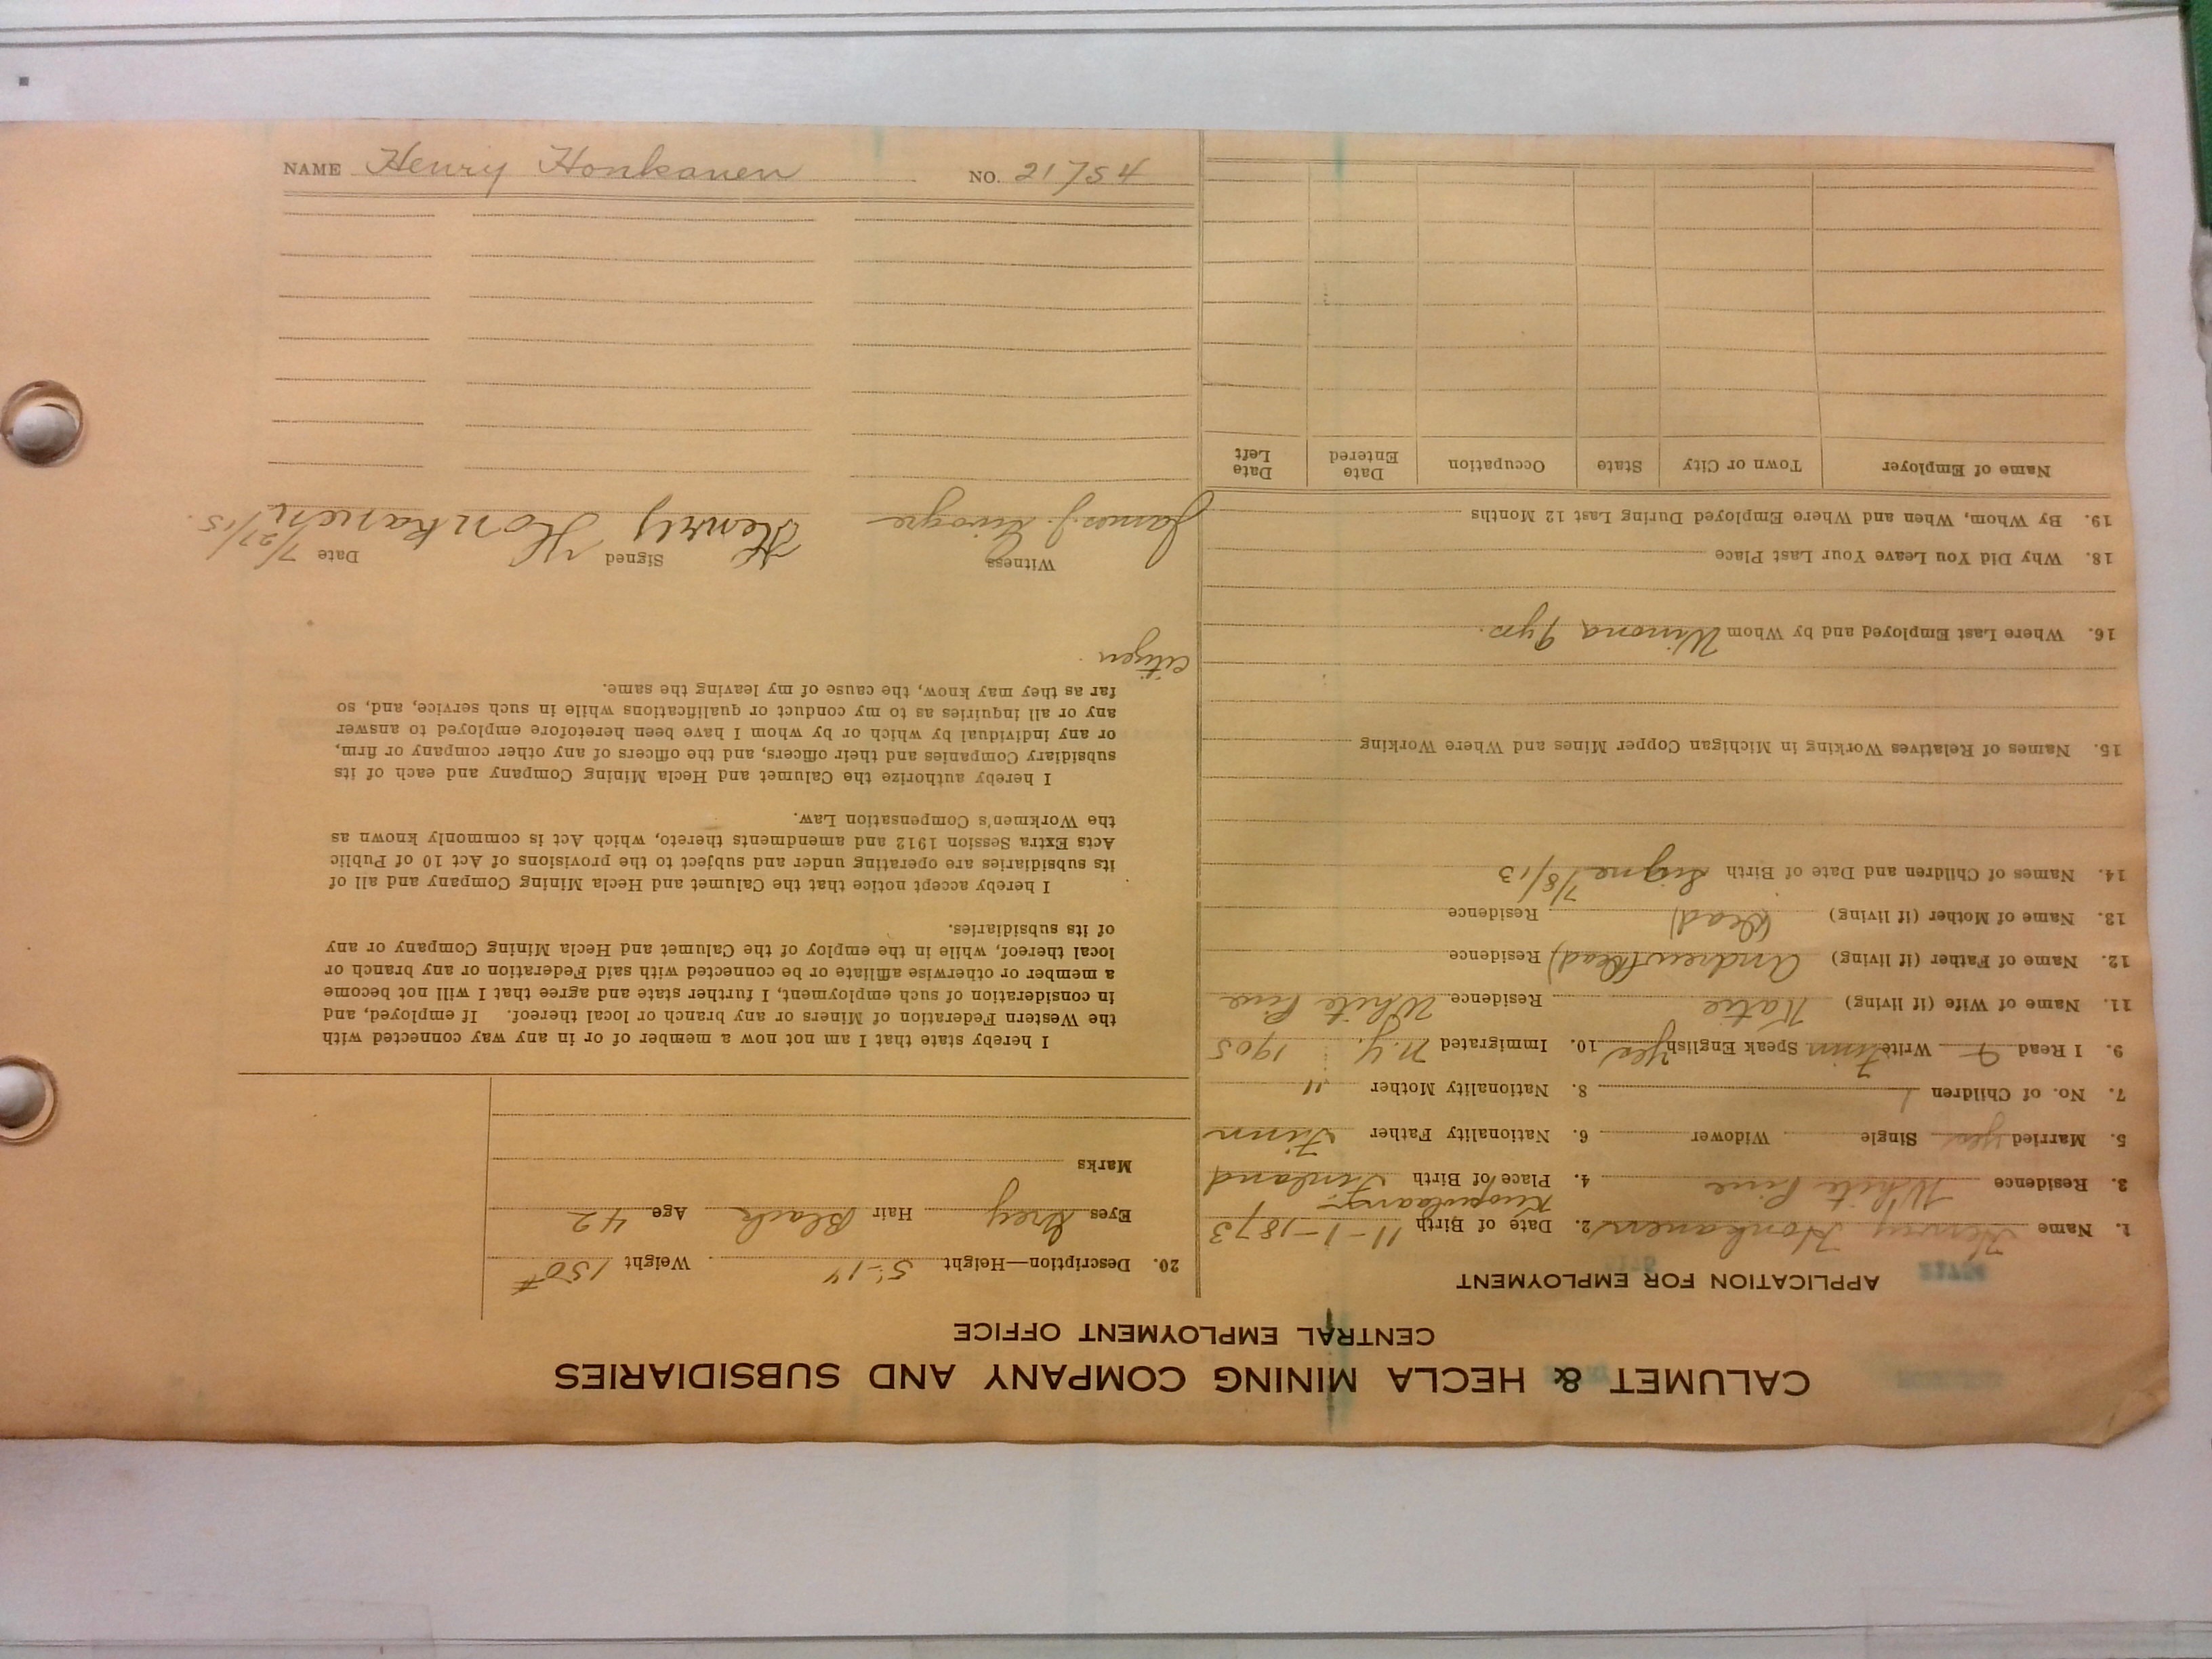 CALUMET & HECLA MINING COMPANY AND SUBSIDIARIES
CENTRAL EMPLOYMENT OFFICE
APPLICATION FOR EMPLOYMENT
1. Name Henry Honkanen 2. Date of Birth 11-1-1873
3. Residence White Pine 4. Place of Birth Finland
5. Married yes Single Widower 6. Nationality Father Finn
7. No. of Children 1 8. Nationality Mother "
9. I Read Write Finn Speak English Yes 10. Immigrated N.Y. 1905
11. Name of Wife (if living) Katie Residence White Pine
12. Name of Father (if living) Andrew (dead) Residence
13. Name of Mother (if living) (Dead) Residence
14. Names of Children and Date of Birth Signe 7/8/13
15. Names of Relatives Working in Michigan Copper Mines and Where Working
16. Where Last Employed and by Whom Winona 9 yrs.
18. Why Did You Leave Your Last Place
19. By Whom, When and Where Employed During Last 12 Months
Name of Employer Town or City State Occupation Date Entered Date Left
20. Description—Height 5'-1" Weight 150#
Eyes Grey Hair Black Age 42
Marks
I hereby state that I am not now a member of or in any way connected with
the Western Federation of Miners or any branch or local thereof. If employed, and
in consideration of such employment, I further state and agree that I will not become
a member or otherwise affiliate or be connected with said Federation or any branch or
local thereof, while in the employ of the Calumet and Hecla Mining Company or any
of its subsidiaries.
I hereby accept notice that the Calumet and Hecla Mining Company and all of
its subsidiaries are operating under and subject to the provisions of Act 10 of Public
Acts Extra Session 1912 and amendments thereto, which Act is commonly known as
the Workmen's Compensation Law.
I hereby authorize the Calumet and Hecla Mining Company and each of its
subsidiary Companies and their officers, and the officers of any other company or firm,
or any individual by which or by whom I have been heretofore employed to answer
any or all inquiries as to my conduct or qualifications while in such service, and, so
far as they may know, the cause of my leaving the same.
citizen
Witness Signed Date 7/27/15.
James J. Henry Honkanen
NAME Henry Honkanen NO. 21754